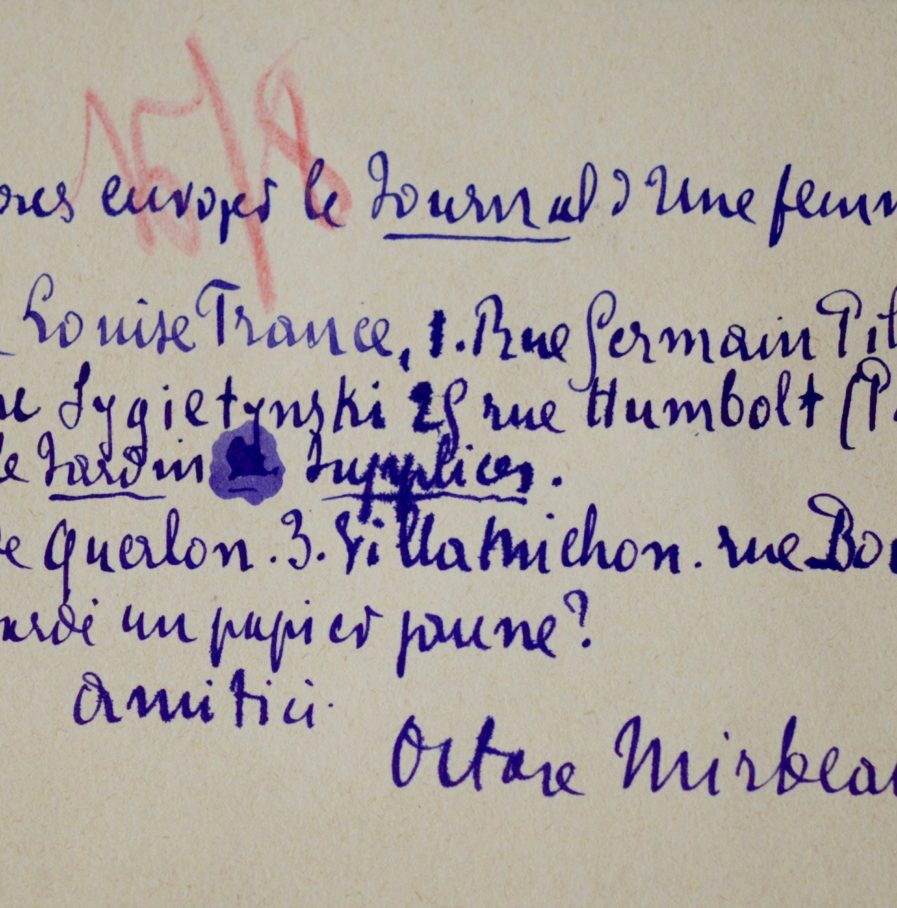 15/8
envoyer le Journal d'une femm
Louise France, 1. Rue Germain Pil
Sygietynski 29 rue Humbolt (P.
le Jardin Supplices.
de Querlon. 3. Villa Michon. rue Boi
un papier jaune?
Amitié.
Octave Mirbeau